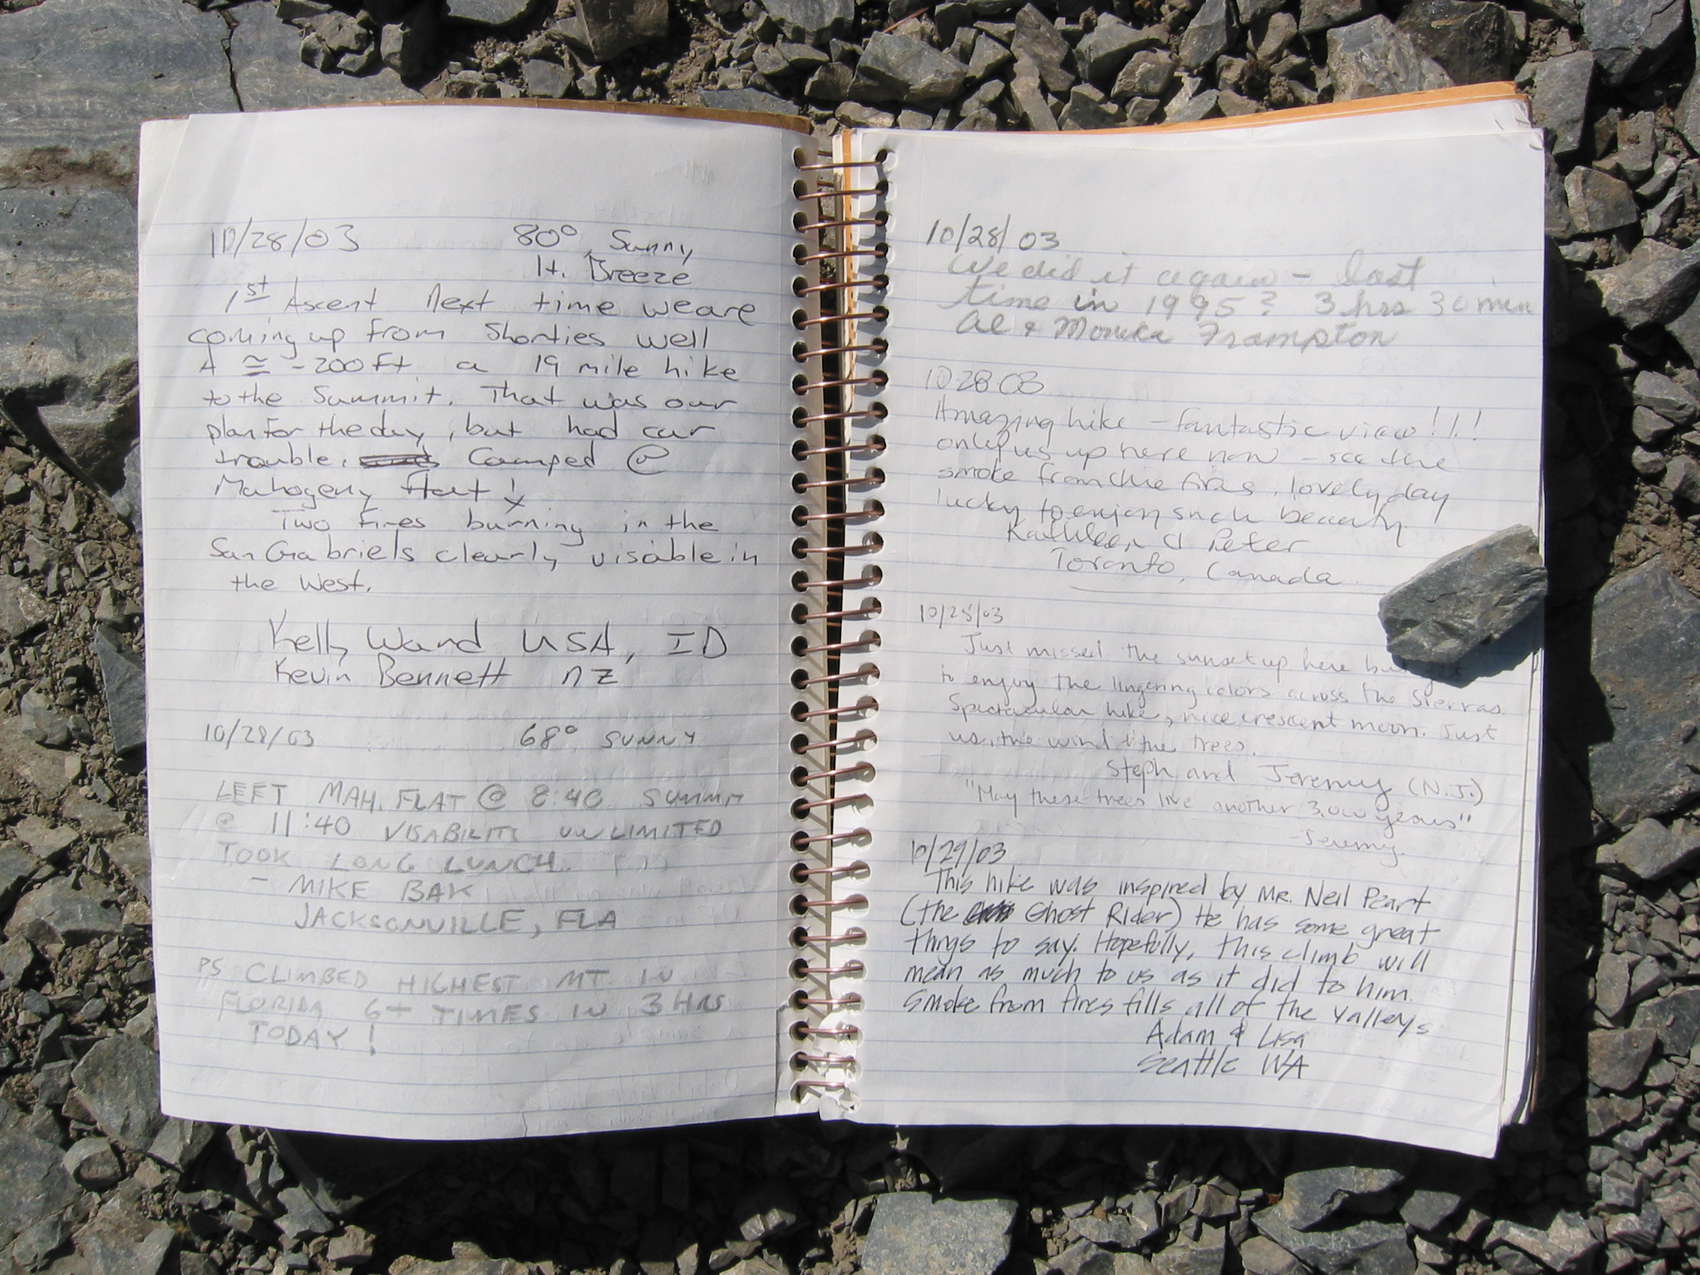 10/28/03 80° Sunny
lt. Breeze
1st Ascent Next time we are
coming up from Shorties well
A ≅ -200ft a 19 mile hike
to the Summit. That was our
plan for the day, but had car
trouble. Camped @
Mahogeny flat!
Two Fires burning in the
San Gabriels clearly visible in
the West.
Kelly Ward USA, ID
Kevin Bennett NZ
10/28/03 68° SUNNY
LEFT MAH. FLAT @ 8:40 SUMMIT
@ 11:40 VISABILITY UNLIMITED
TOOK LONG LUNCH.
- MIKE BAK
JACKSONVILLE, FLA
PS CLIMBED HIGHEST MT. IN
FLORIDA 6+ TIMES IN 3 HRS
TODAY!
10/28/03
We did it again - last
time in 1995? 3 hrs 30 min
Al & Monika Frampton
10 28 03
Amazing hike - fantastic view!!!
only us up here now - see the
smoke from the fires, lovely day
lucky to enjoy such beauty
Kathleen & Peter
Toronto, Canada
10/28/03
Just missed the sunset up here
to enjoy the lingering colors across the Sierras.
Spectacular hike, nice crescent moon. Just
us, the wind & the trees.
Steph and Jeremy (N.J.)
"May these trees live another 3,000 years"
-Jeremy
10/29/03
This hike was inspired by Mr. Neil Peart
(the Ghost Rider) He has some great
things to say. Hopefully, this climb will
mean as much to us as it did to him.
Smoke from fires fills all of the valleys
Adam & Lisa
Seattle WA